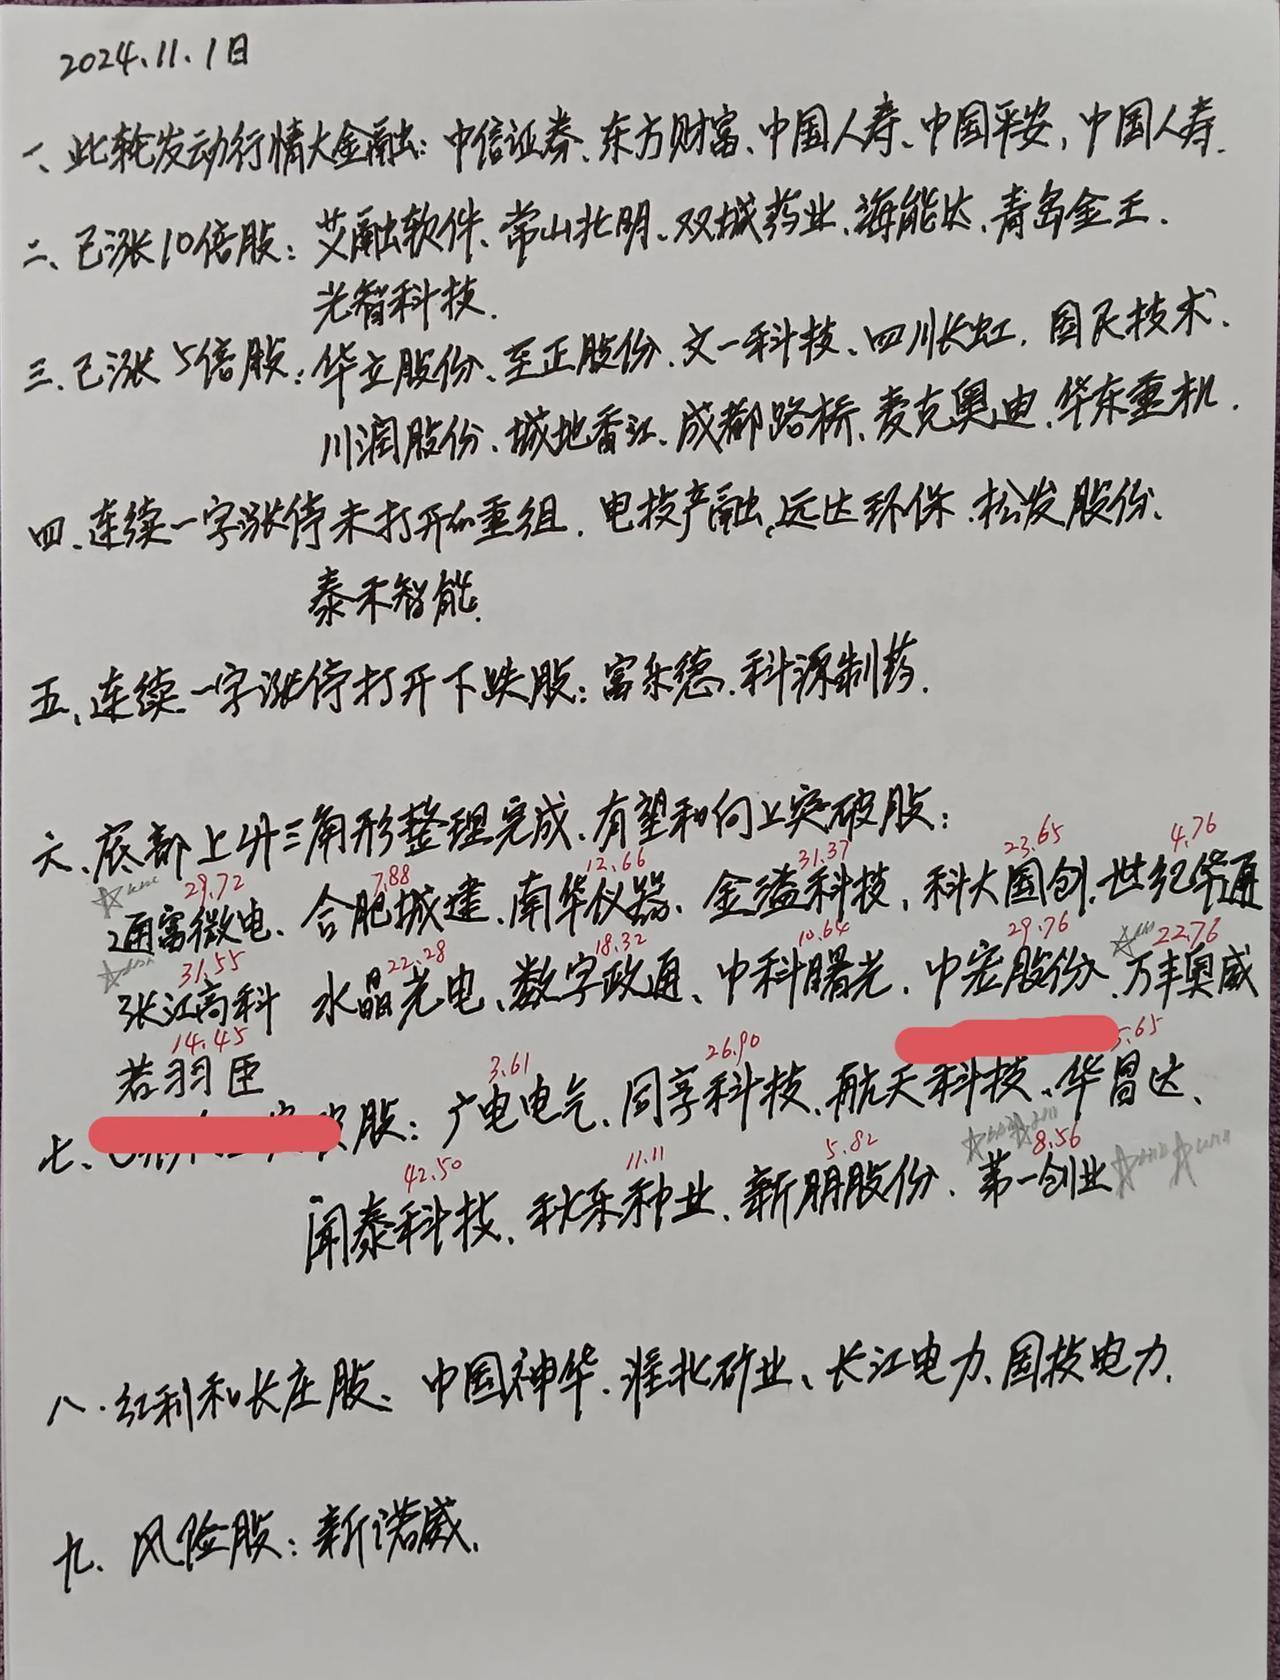 2024.11.1日
一、此轮发动行情大金融：中信证券、东方财富、中国人寿、中国平安，中国人寿.
二、已涨10倍股：艾融软件、常山北明、双城药业、海能达、青岛金王.
光智科技.
三、已涨5倍股：华立股份、至正股份、文一科技、四川长虹，国民技术.
川润股份、城地香江、成都路桥、麦克奥迪、华东重机.
四、连续一字涨停未打开的重组．电投产融、远达环保、松发股份、
泰禾智能.
五、连续一字涨停打开下跌股：富乐德、科源制药.
六、底部上升三角形整理完成、有望和向上突破股：
29.72 7.88 12.66 31.37 23.65 4.76
通富微电、合肥城建、南华仪器、金溢科技，科大国创、世纪华通
31.55 22.28 18.32 10.64 29.76 22.76
张江高科 水晶光电、数字政通、中科曙光、中宏股份、万丰奥威
14.45 3.61 26.90 5.65
若羽臣
七、股：广电电气、同享科技、航天科技、华昌达、
42.50 11.11 5.82 8.56
闻泰科技、秋乐种业、新朋股份、第一创业
八、红利和长庄股、中国神华、淮北矿业、长江电力、国投电力.
九、风险股：新诺威.